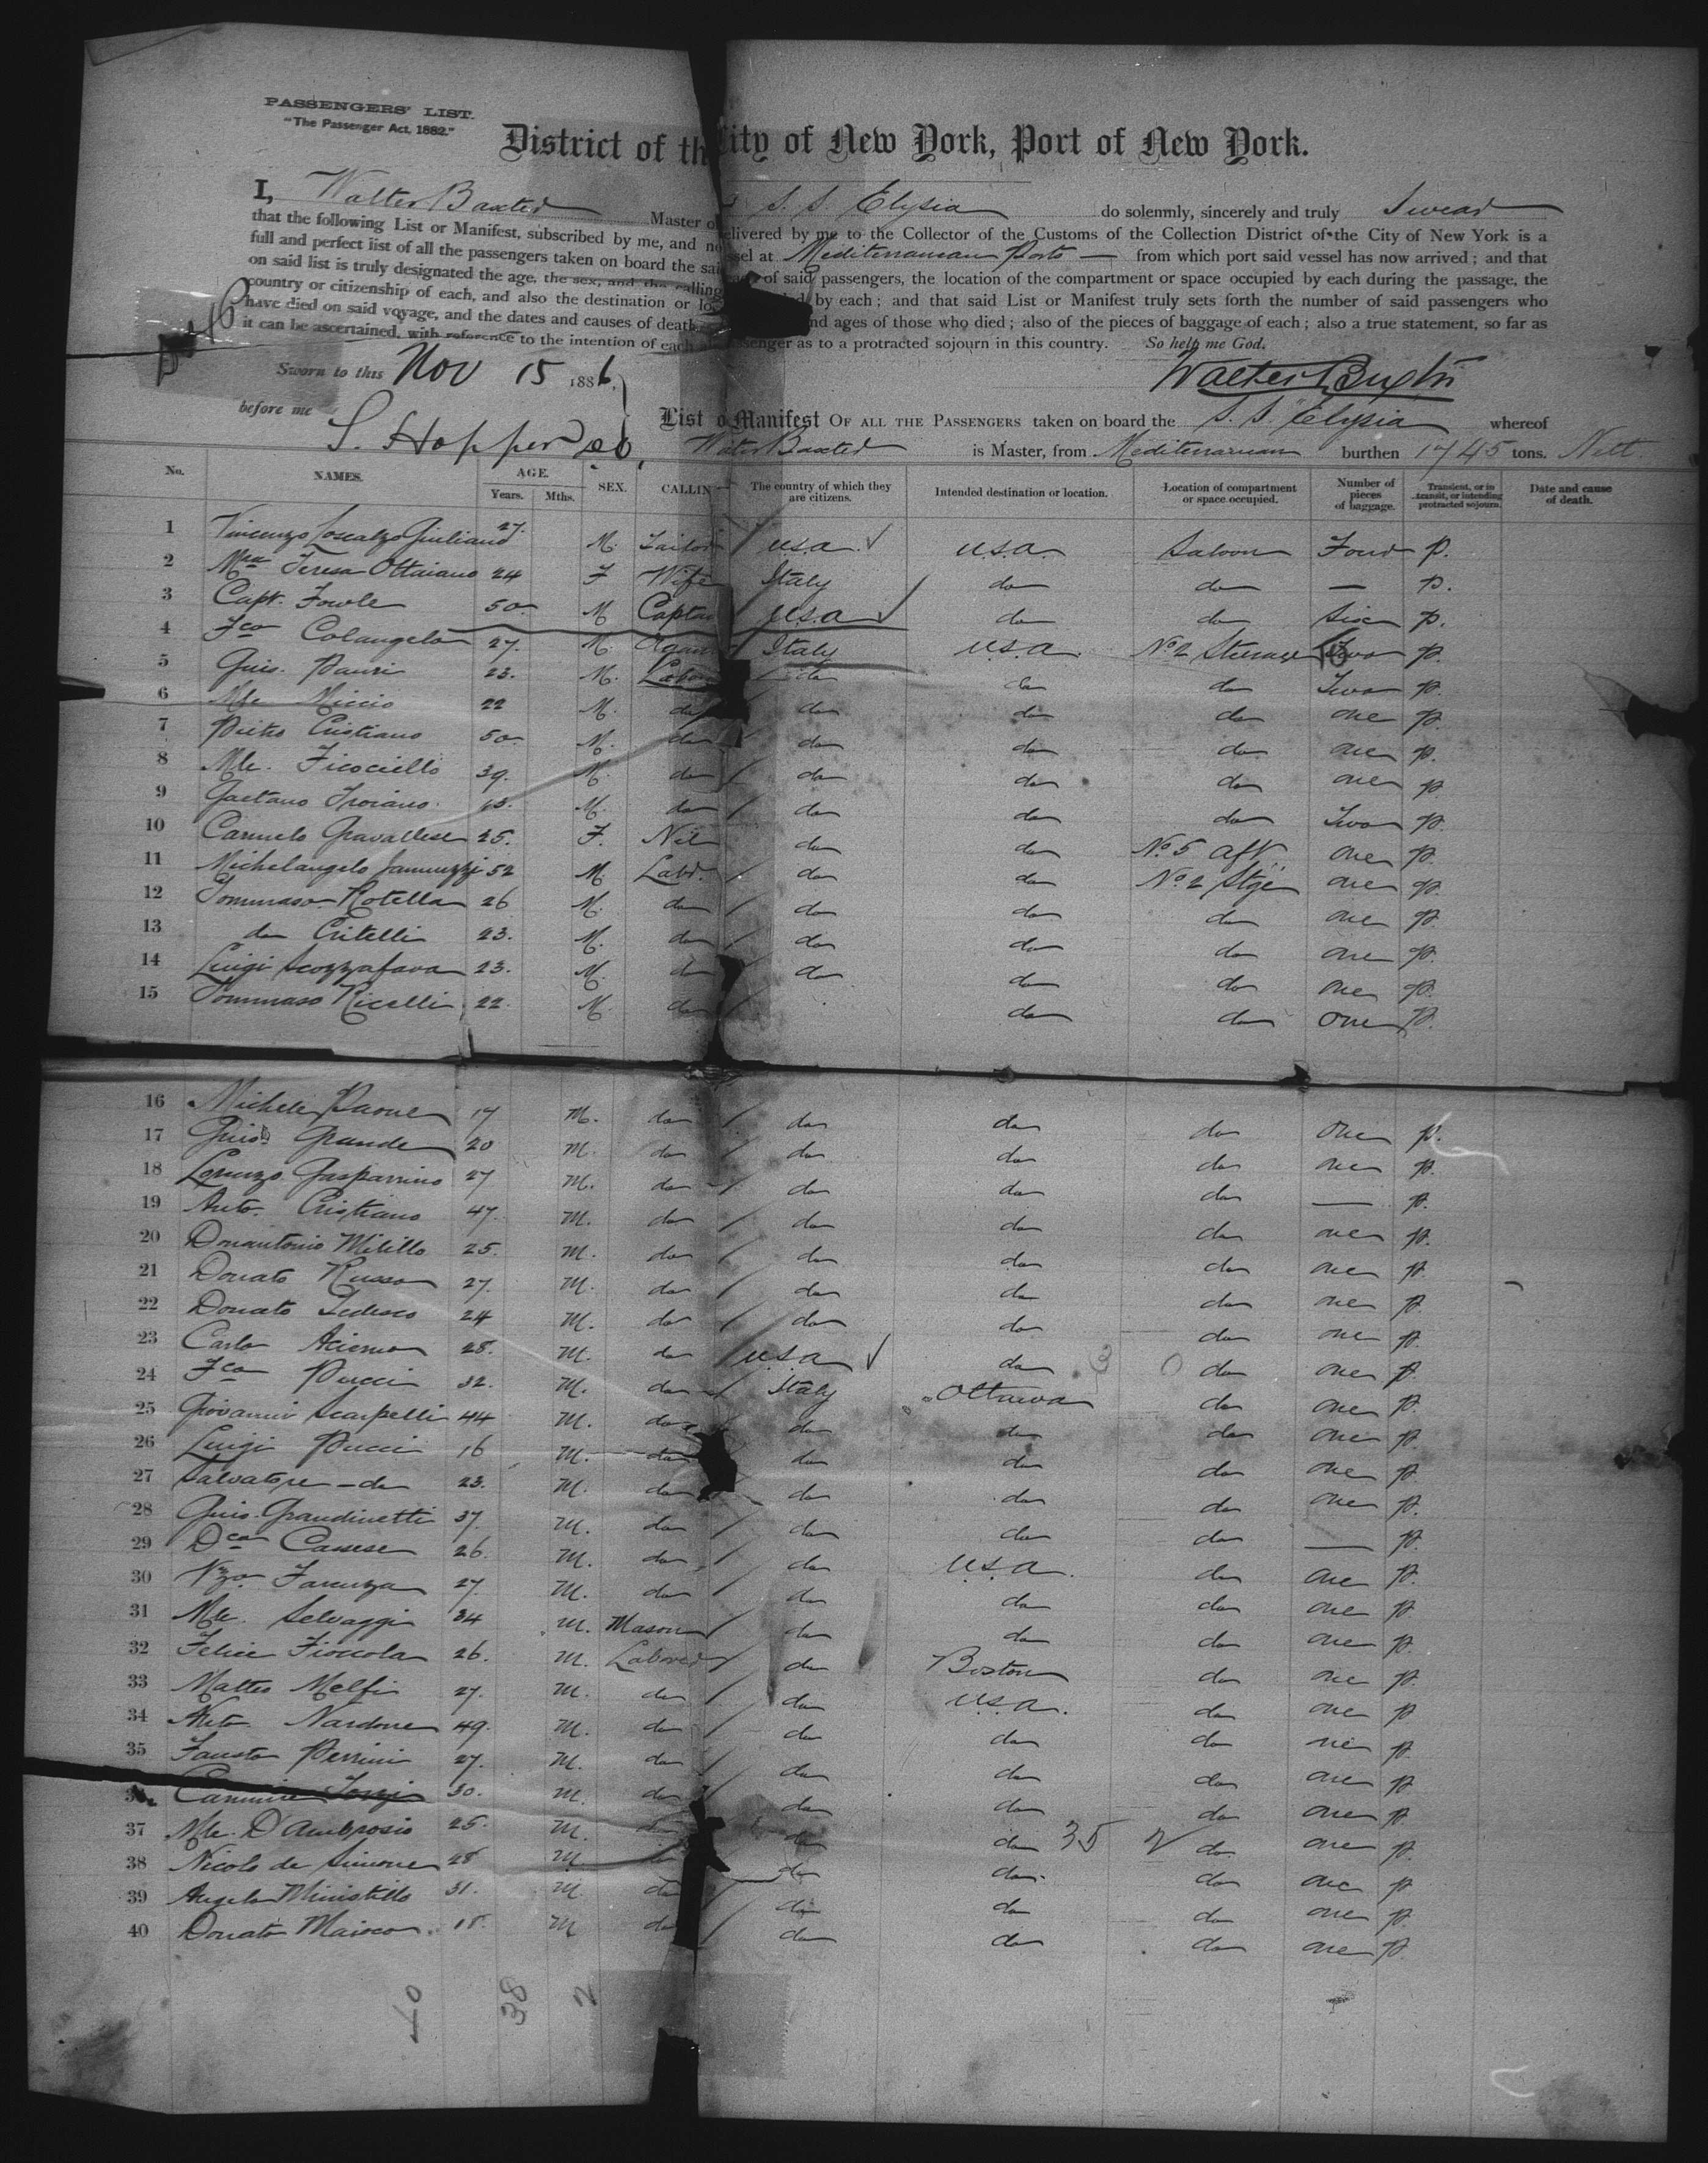 PASSENGERS' LIST.
"The Passenger Act, 1882."
District of th City of New York, Port of New York.
I, Walter Baxter Master o S. S. Elysia do solemnly, sincerely and truly Swear
that the following List or Manifest, subscribed by me, and no elivered by me to the Collector of the Customs of the Collection District of the City of New York is a
full and perfect list of all the passengers taken on board the sai ssel at Mediterranean Ports — from which port said vessel has now arrived; and that
on said list is truly designated the age, the sex, and the calling of said passengers, the location of the compartment or space occupied by each during the passage, the
country or citizenship of each, and also the destination or lo by each; and that said List or Manifest truly sets forth the number of said passengers who
have died on said voyage, and the dates and causes of death, nd ages of those who died; also of the pieces of baggage of each; also a true statement, so far as
it can be ascertained, with reference to the intention of each ssenger as to a protracted sojourn in this country. So help me God.
Sworn to this Nov 15 1886, Walter Baxter
before me S. Hopper
List o Manifest OF ALL THE PASSENGERS taken on board the S. S. Elysia whereof
Walter Baxter is Master, from Mediterranean burthen 1745 tons. Nett.
No. NAMES. AGE. Years. Mths. SEX. CALLIN The country of which they are citizens. Intended destination or location. Location of compartment or space occupied. Number of pieces of baggage. Transient, or in transit, or intending protracted sojourn. Date and cause of death.
1 Vincenzo Loscalzo Giuliano 27. M. Tailor U.S.A. U.S.A. Saloon Four p.
2 Mrs Teresa Ottaiano 24 F Wife Italy do do — p.
3 Capt. Fowle 50 M Captai U.S.A do do Six p.
4 Fco Colangelo 27. M. Italy U.S.A. No 2 Steerage Two p.
5 Guis. Pauri 23. M. Labo do do do Two p.
6 Mle Miccio 22 M. do do do do one p.
7 Pietro Cristiano 50 M. do do do do one p.
8 Mle. Ficociello 39. M. do do do do one p
9 Gaetano Troiano. M. do do do do Two p.
10 Carmela Gravallese 25. F. Nil do do No 5 aft. one p.
11 Michelangelo Jannuzzi 52 M. Labr. do do No 2 Stge one p.
12 Tommaso Rotella 26 M. do do do do one p.
13 do Critelli 23. M. do do do do one p.
14 Luigi Scozzafava 23. M. do do do do one p.
15 Tommaso Ricelli 22. M. do do do one p.
16 Michele Paone 17 M. do do do do one p.
17 Guis. Grande 20 M. do do do do one p.
18 Lorenzo Gasparrino 27 M. do do do do — p.
19 Anto. Cristiano 47. M. do do do do one p.
20 Donantonio Mitillo 25. M. do do do do one p.
21 Donato Russo 27. M. do do do do one p.
22 Donato Tedesco 24 M. do do do do one p.
23 Carlo Acierno 28. M. do U.S.A do do one p.
24 Fco Pucci 32. M. do Italy Ottawa do one p.
25 Giovanni Scarpelli 44 M. do do do do one p.
26 Luigi Pucci 16 M. do do do do one p.
27 Salvatore - do 23. M. do do do do one p.
28 Guis. Grandinetti 37. M. do do do do — p.
29 Dco Canese 26. M. do do U.S.A. do one p.
30 Vzo Farenza 27. M. do do do do one p.
31 Mle. Selvaggi 34 M. Mason do do do one p.
32 Felice Fioccola 26. M. Laborer do Boston do one p.
33 Matteo Melfi 27. M. do do U.S.A. do one p
34 Anto. Nardone 49. M. do do do do one p.
35 Fausto Perrini 27. M. do do do do one p.
Carmine 30. M. do do do do one p.
37 Mle. D'Ambrosio 25. M. do do do 35 2 do one p.
38 Nicola de Simone 28 M. do do do do one p.
39 Angelo Ministillo 31. M do do do do one p.
40 Donato Maiocco 18. M do do do do one p.
40 38 2